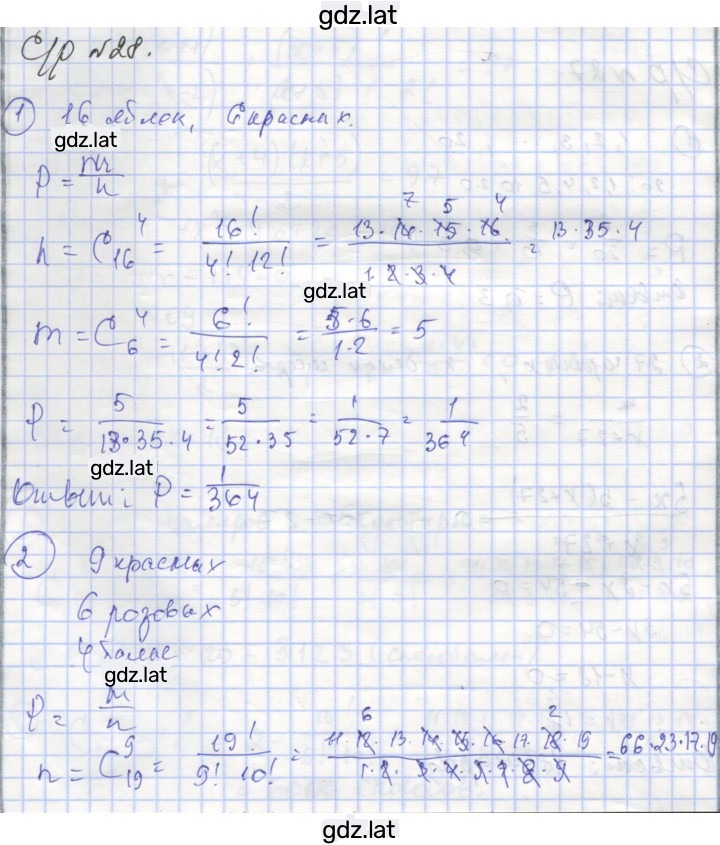 gdz.lat
С/р №28.
① 16 яблок, 6 красных.
gdz.lat
P = m/n
n = C₁₆⁴ = 16!/(4! 12!) = (13·14·15·16)/(1·2·3·4) = 13·35·4
7 5 4
gdz.lat
m = C₆⁴ = 6!/(4! 2!) = (5·6)/(1·2) = 5
P = 5/(13·35·4) = 5/(52·35) = 1/(52·7) = 1/364
gdz.lat
Ответ: P = 1/364
② 9 красных
6 розовых
4 белые
gdz.lat
P = m/n
n = C₁₉⁹ = 19!/(9! 10!) = = 66·23·17·19
gdz.lat